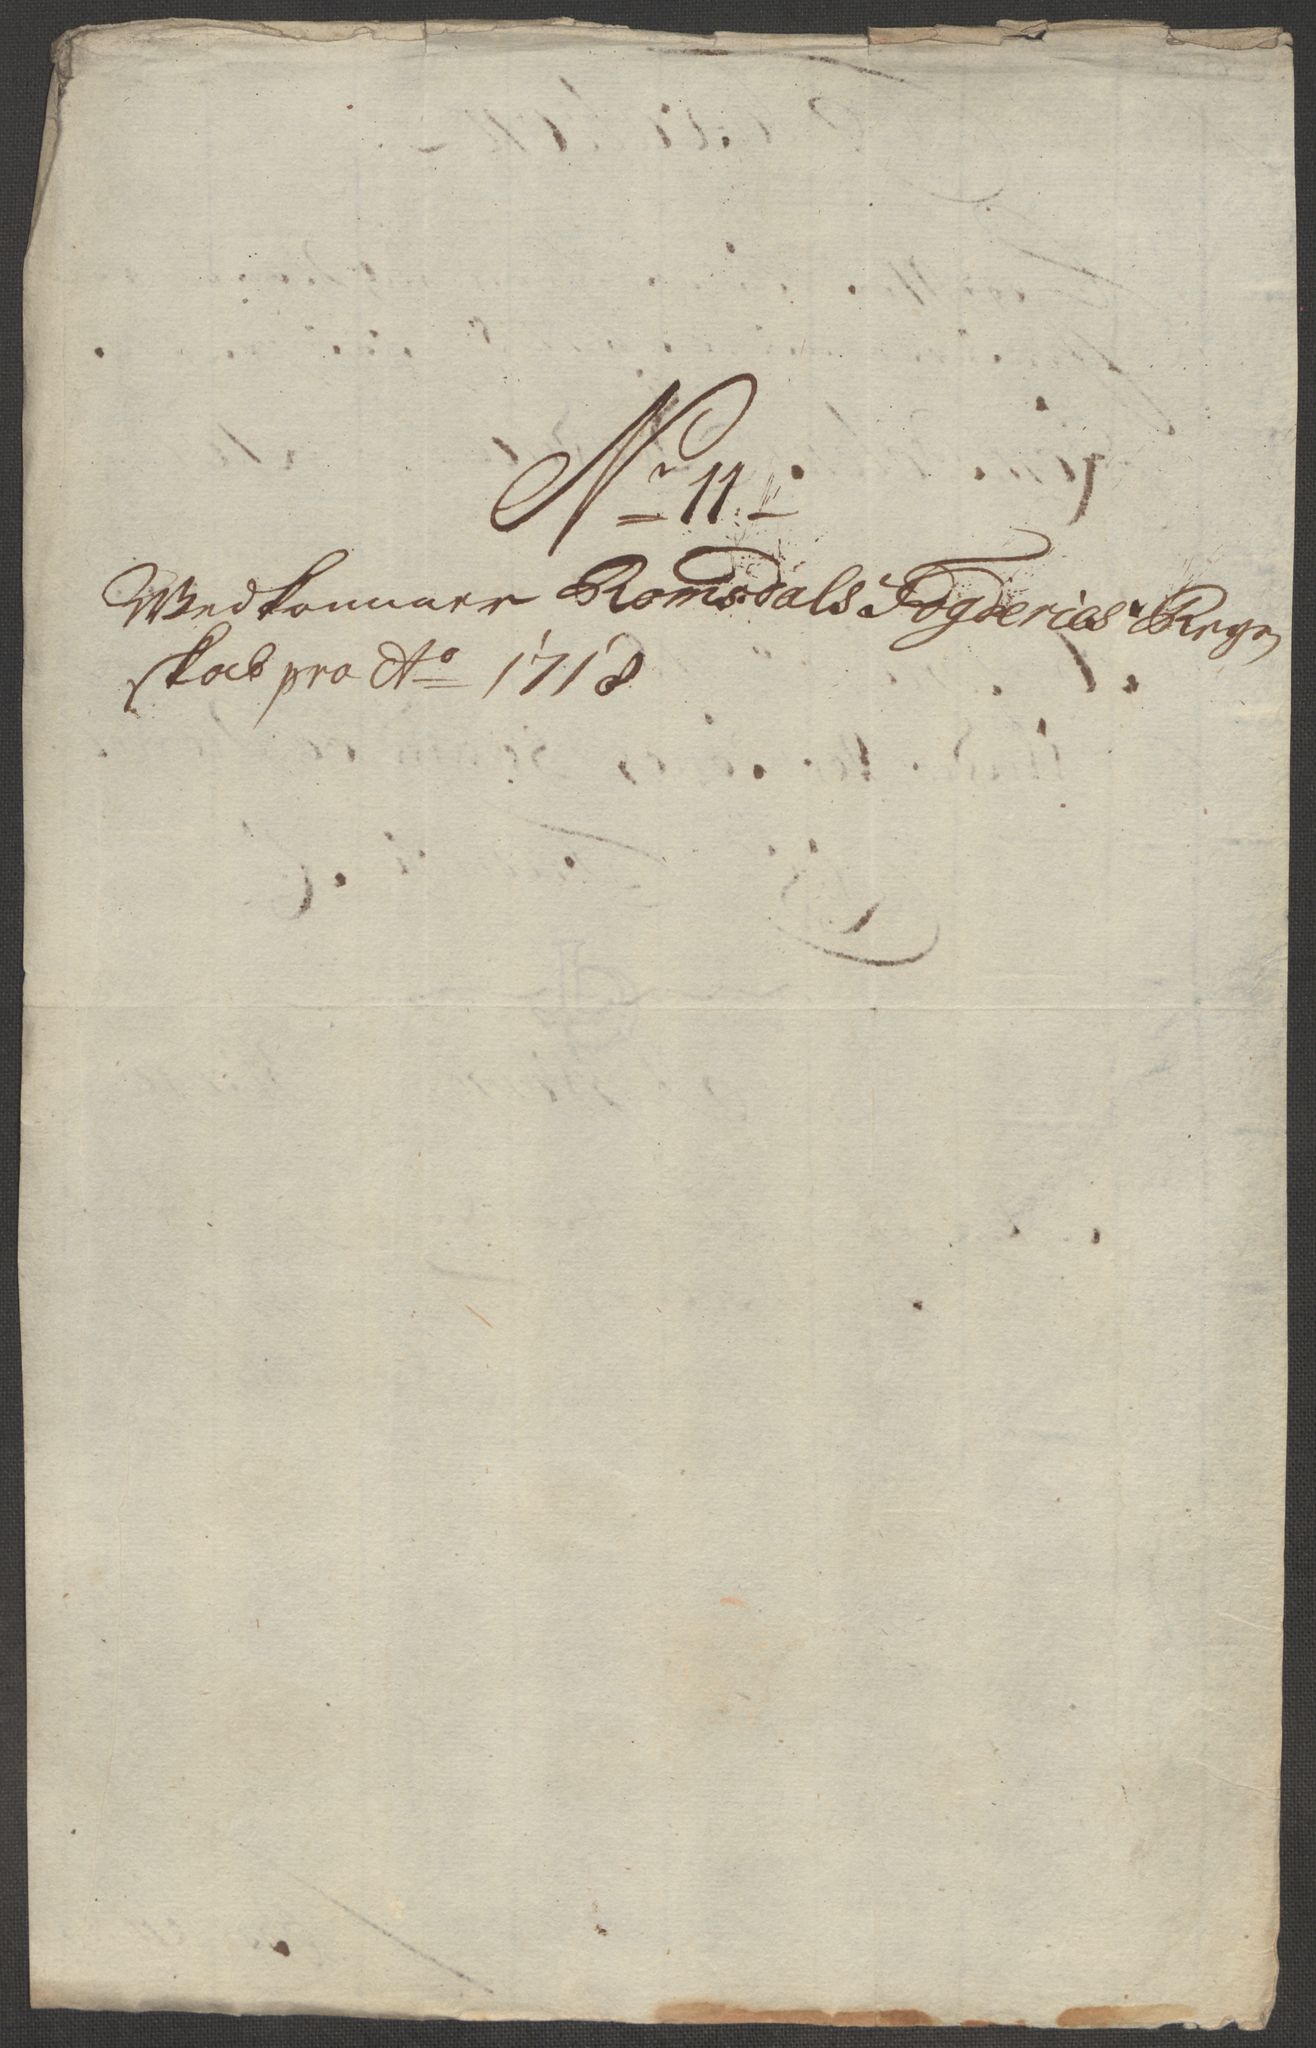 No 11
Wedkommer Romsdals Fogderies Regn
skab pro Ao 1718